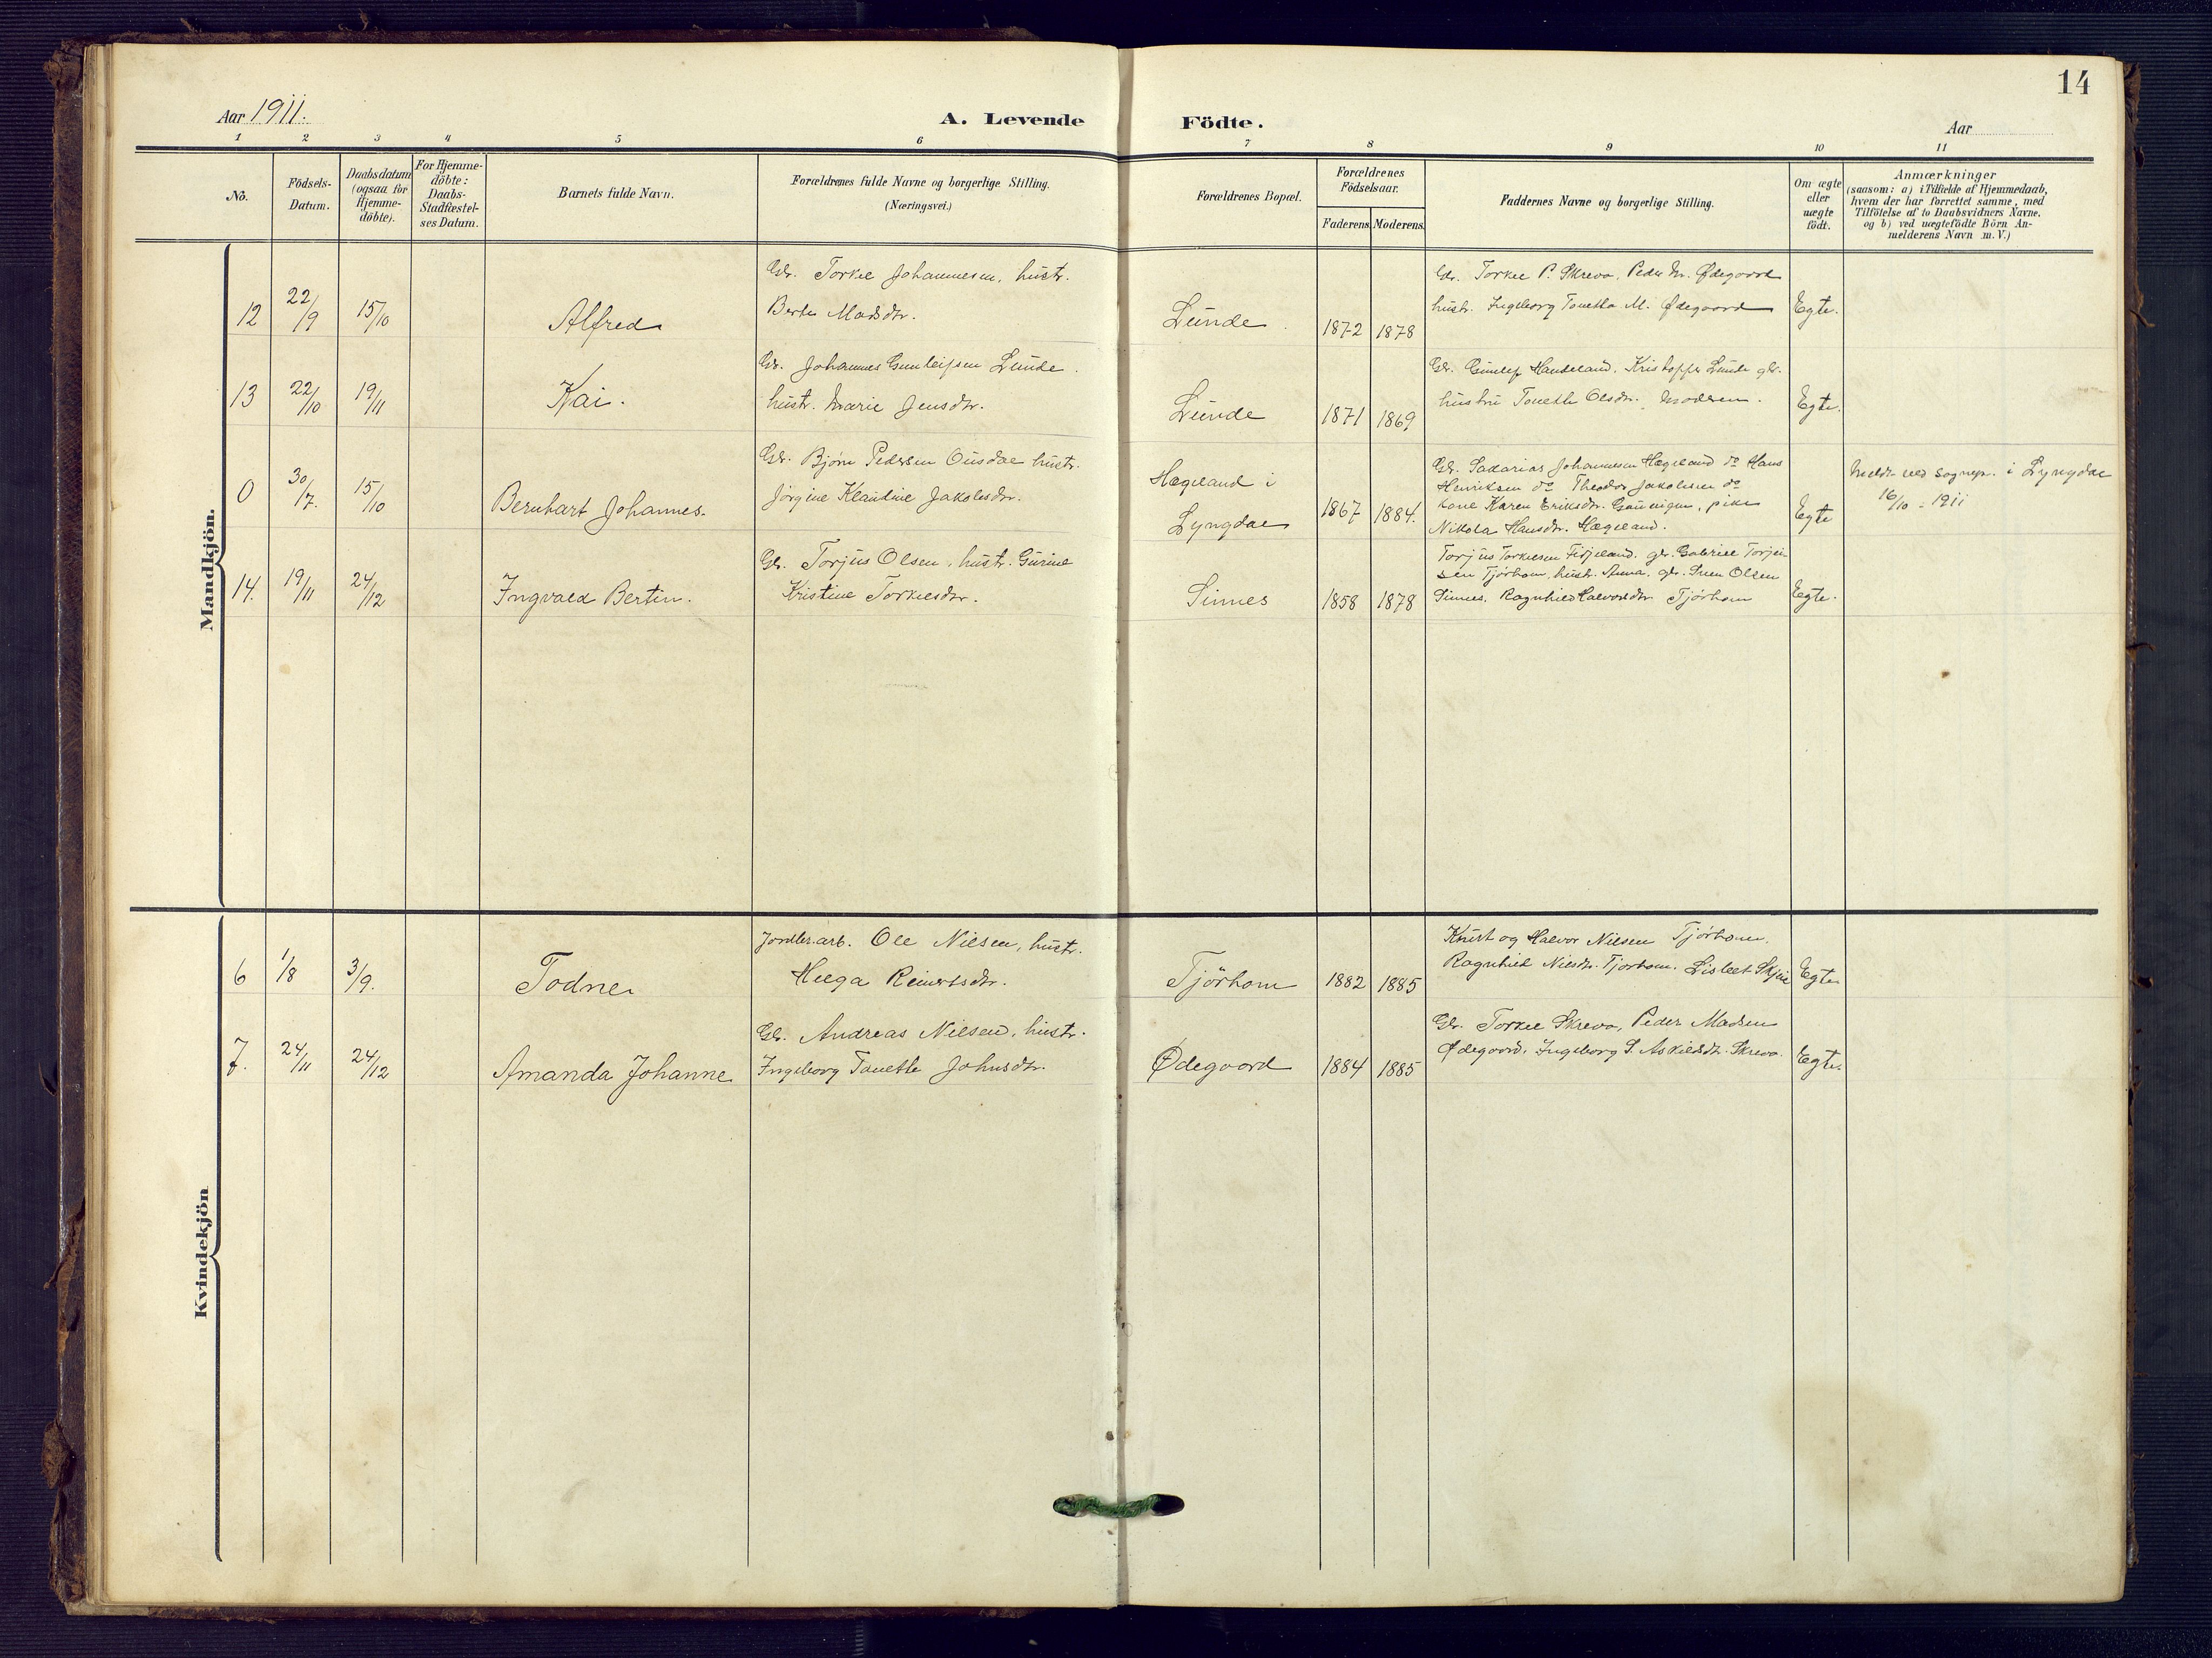 14
Aar 1911.
A. Levende Födte.
Aar
1 2 3 4 5 6 7 8 9 10 11
No.
Födsels-
Datum.
Daabsdatum
(ogsaa for
Hjemme-
döbte).
For Hjemme-
döbte:
Daabs-
Stadfæstel-
ses Datum.
Barnets fulde Navn.
Forældrenes fulde Navne og borgerlige Stilling.
(Næringsvei.)
Forældrenes Bopæl.
Forældrenes
Födselsaar.
Faderens. Moderens.
Faddernes Navne og borgerlige Stilling.
Om ægte
eller
uægte
födt.
Anmærkninger
(saasom: a) i Tilfælde af Hjemmedaab,
hvem der har forrettet samme, med
Tilföielse af to Daabsvidners Navne,
og b) ved uægtefödte Börn An-
melderens Navn m. V.)
Mandkjön.
12
22/9
15/10
Alfred
Gbr. Torkel Johannesen, hustr.
Berte Madsdtr.
Lunde
1872 1878
Gbr. Torkel P. Skrevo, Peder M. Ødegaard
hustr. Ingeborg Tonetta M. Ødegaard
Egte.
13
22/10
19/11
Kai.
Gbr. Johannes Gunleifsen Lunde
hustr. Marie Jensdtr.
Lunde
1871 1869
Gbr. Gunlef Handeland, Kristoffer Lunde gbr.
hustru Toneth Olsdtr. Moderen.
Egte.
0
30/7.
15/10
Bernhart Johannes.
Gbr. Bjørn Pedersen Ousdal hustr.
Jørgine Klaudine Jakobsdtr.
Hægeland i
Lyngdal
1867 1884.
Gbr. Sakarias Johannesen Hægeland do Hans
Henriksen do Theodor Jakobsen do
kone Karen Eriksdtr. pike
Nikola Hansdtr. Hægeland.
Egte
Meldt ved sognepr. i Lyngdal
16/10 - 1911
14.
19/11
24/12
Ingvald Bertin.
Gbr. Torjus Olsen, hustr. Gurine
Kristine Torkelsdtr.
Sinnes
1858 1878
Torjus Torkelsen Fidjeland. gbr. Gabriel Torju-
sen Tjörhom, hustr. Anna, gbr. Sven Olsen
Sinnes, Ragnhild Halvorsdtr Tjörhom
Egte.
Kvindekjön
6
1/8
3/9.
Todne
Jordbr.arb. Ole Nilsen, hustr.
Helga Reinertsdtr.
Tjörhom
1882 1885
Knut og Halvor Nilsen Tjörhom.
Ragnhild Nilsdtr. Tjorhom. Lisbet
Egte
7.
24/11
24/12
Amanda Johanne
Gbr. Andreas Nilsen, hustr.
Ingeborg Tanette Johnsdtr.
Ødegaard
1884 1885
Gbr. Torkel Skrevo, Peder Madsen
Ødegaard, Ingeborg S. Askildsdtr. Skrevo.
Egte.